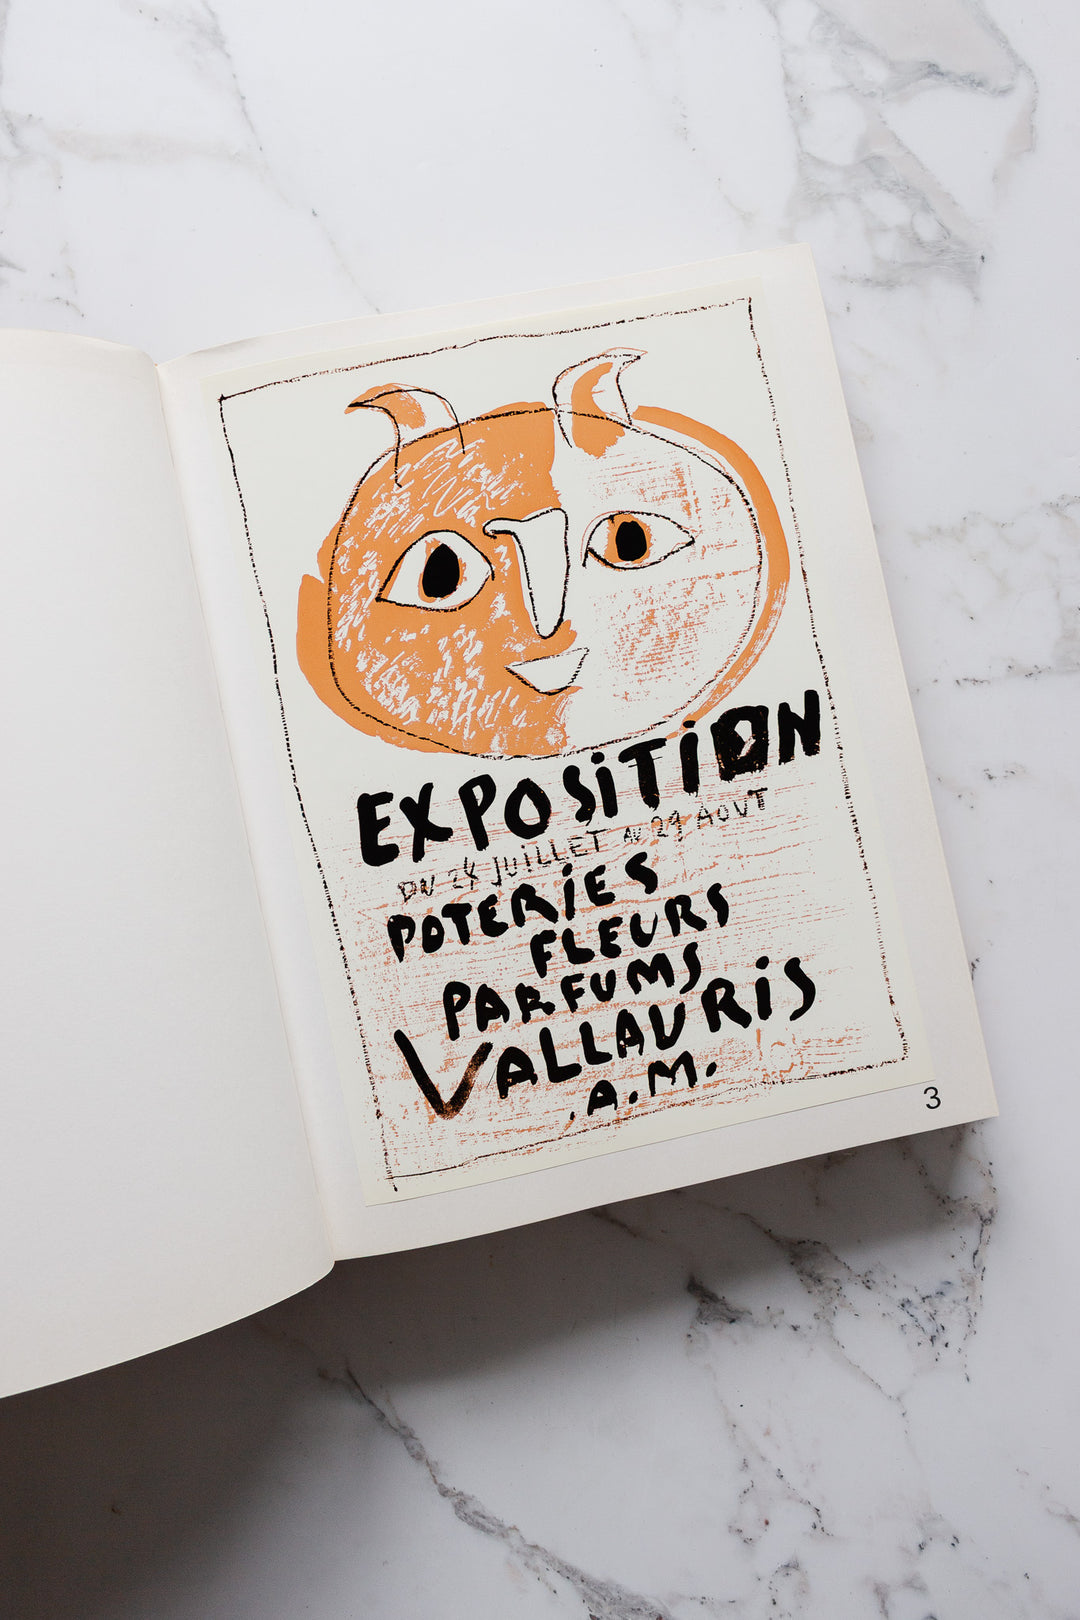 EXPOSiTiON
DU 24 JUiLLET AU 29 AOUT
POTERiES
FLEURS
PARFUMS
VALLAURiS
.A.M.
3